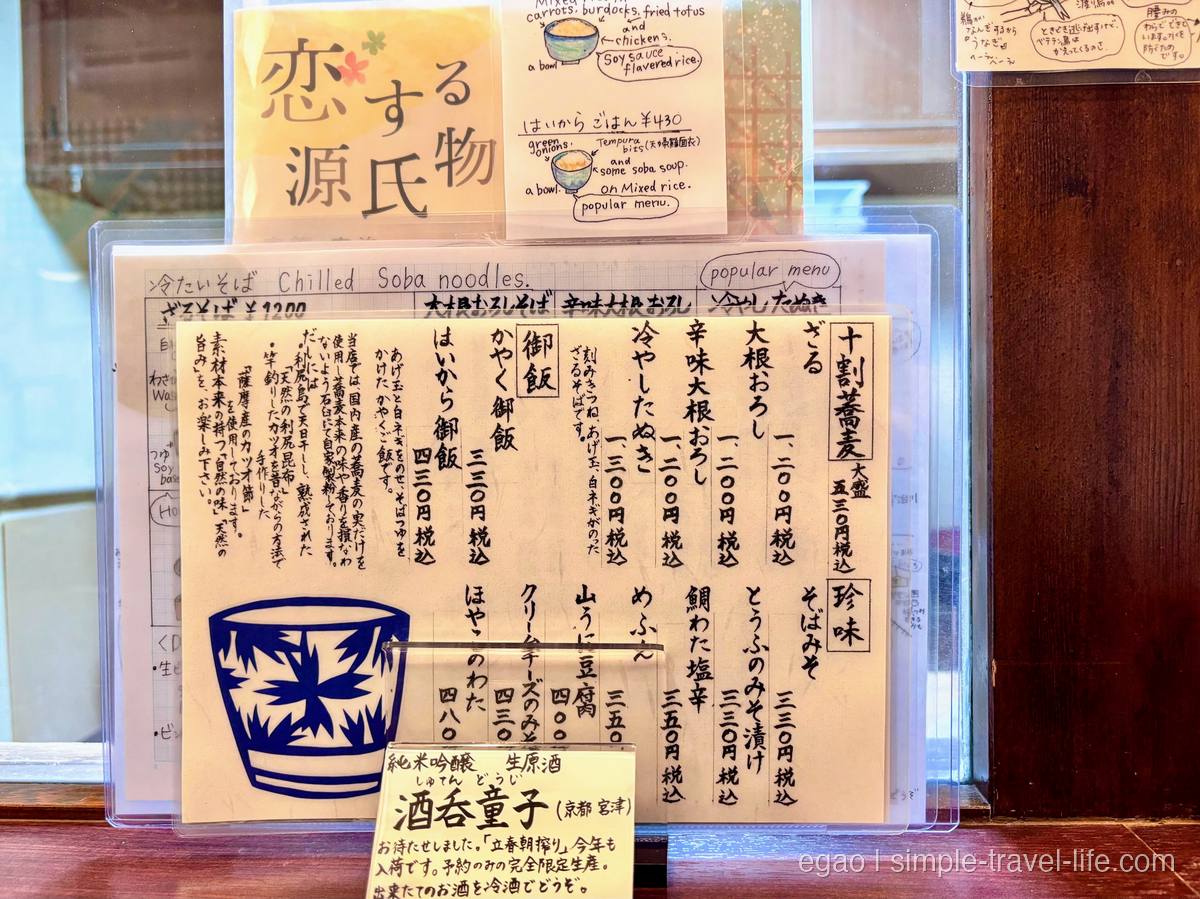 恋する
源氏物
carrots, burdocks, fried tofus
and
chickens.
a bowl
Soy sauce
flavered rice.
はいから ごはん ¥430
green
onions.
Tempura
bits
and
some soba soup.
a bowl.
on Mixed rice.
popular menu.
冷たいそば Chilled Soba noodles.
popular menu
ざるそば ¥1200
大根おろしそば
辛味大根おろし
冷やしたぬき
十割蕎麦
大盛
五三〇円税込
ざる
一、二〇〇円税込
大根おろし
一、二〇〇円税込
辛味大根おろし
一、二〇〇円税込
冷やしたぬき
一、三〇〇円税込
刻みきつね、あげ玉、白ネギがのった
ざるそばです。
御飯
かやく御飯
三三〇円税込
はいから御飯
四三〇円税込
あげ玉と白ネギをのせ、そばつゆを
かけた、かやくご飯です。
当店では、国内産の蕎麦の実だけを
使用し蕎麦本来の味や香りを損なわ
ないよう石臼にて自家製粉しております。
だしには
・利尻島で天日干しし、熟成された
「天然の利尻昆布」
・竿釣りしたカツオを昔ながらの方法で
手作りした
「薩摩産のカツオ節」
を使用しております。
素材本来の持つ「自然の味」「天然の
旨み」を、お楽しみ下さい。
珍味
そばみそ
三三〇円税込
とうふのみそ漬け
三三〇円税込
鯛わた塩辛
三五〇円税込
めふん
三五〇
山うに豆腐
四〇〇
クリームチーズのみそ
四三〇
ほや このわた
四八〇
純米吟醸 生原酒
しゅてん どうじ
酒呑童子(京都 宮津)
お待たせしました。「立春朝搾り」今年も
入荷です。予約のみの完全限定生産。
出来たてのお酒を冷酒でどうぞ。
egao | simple-travel-life.com